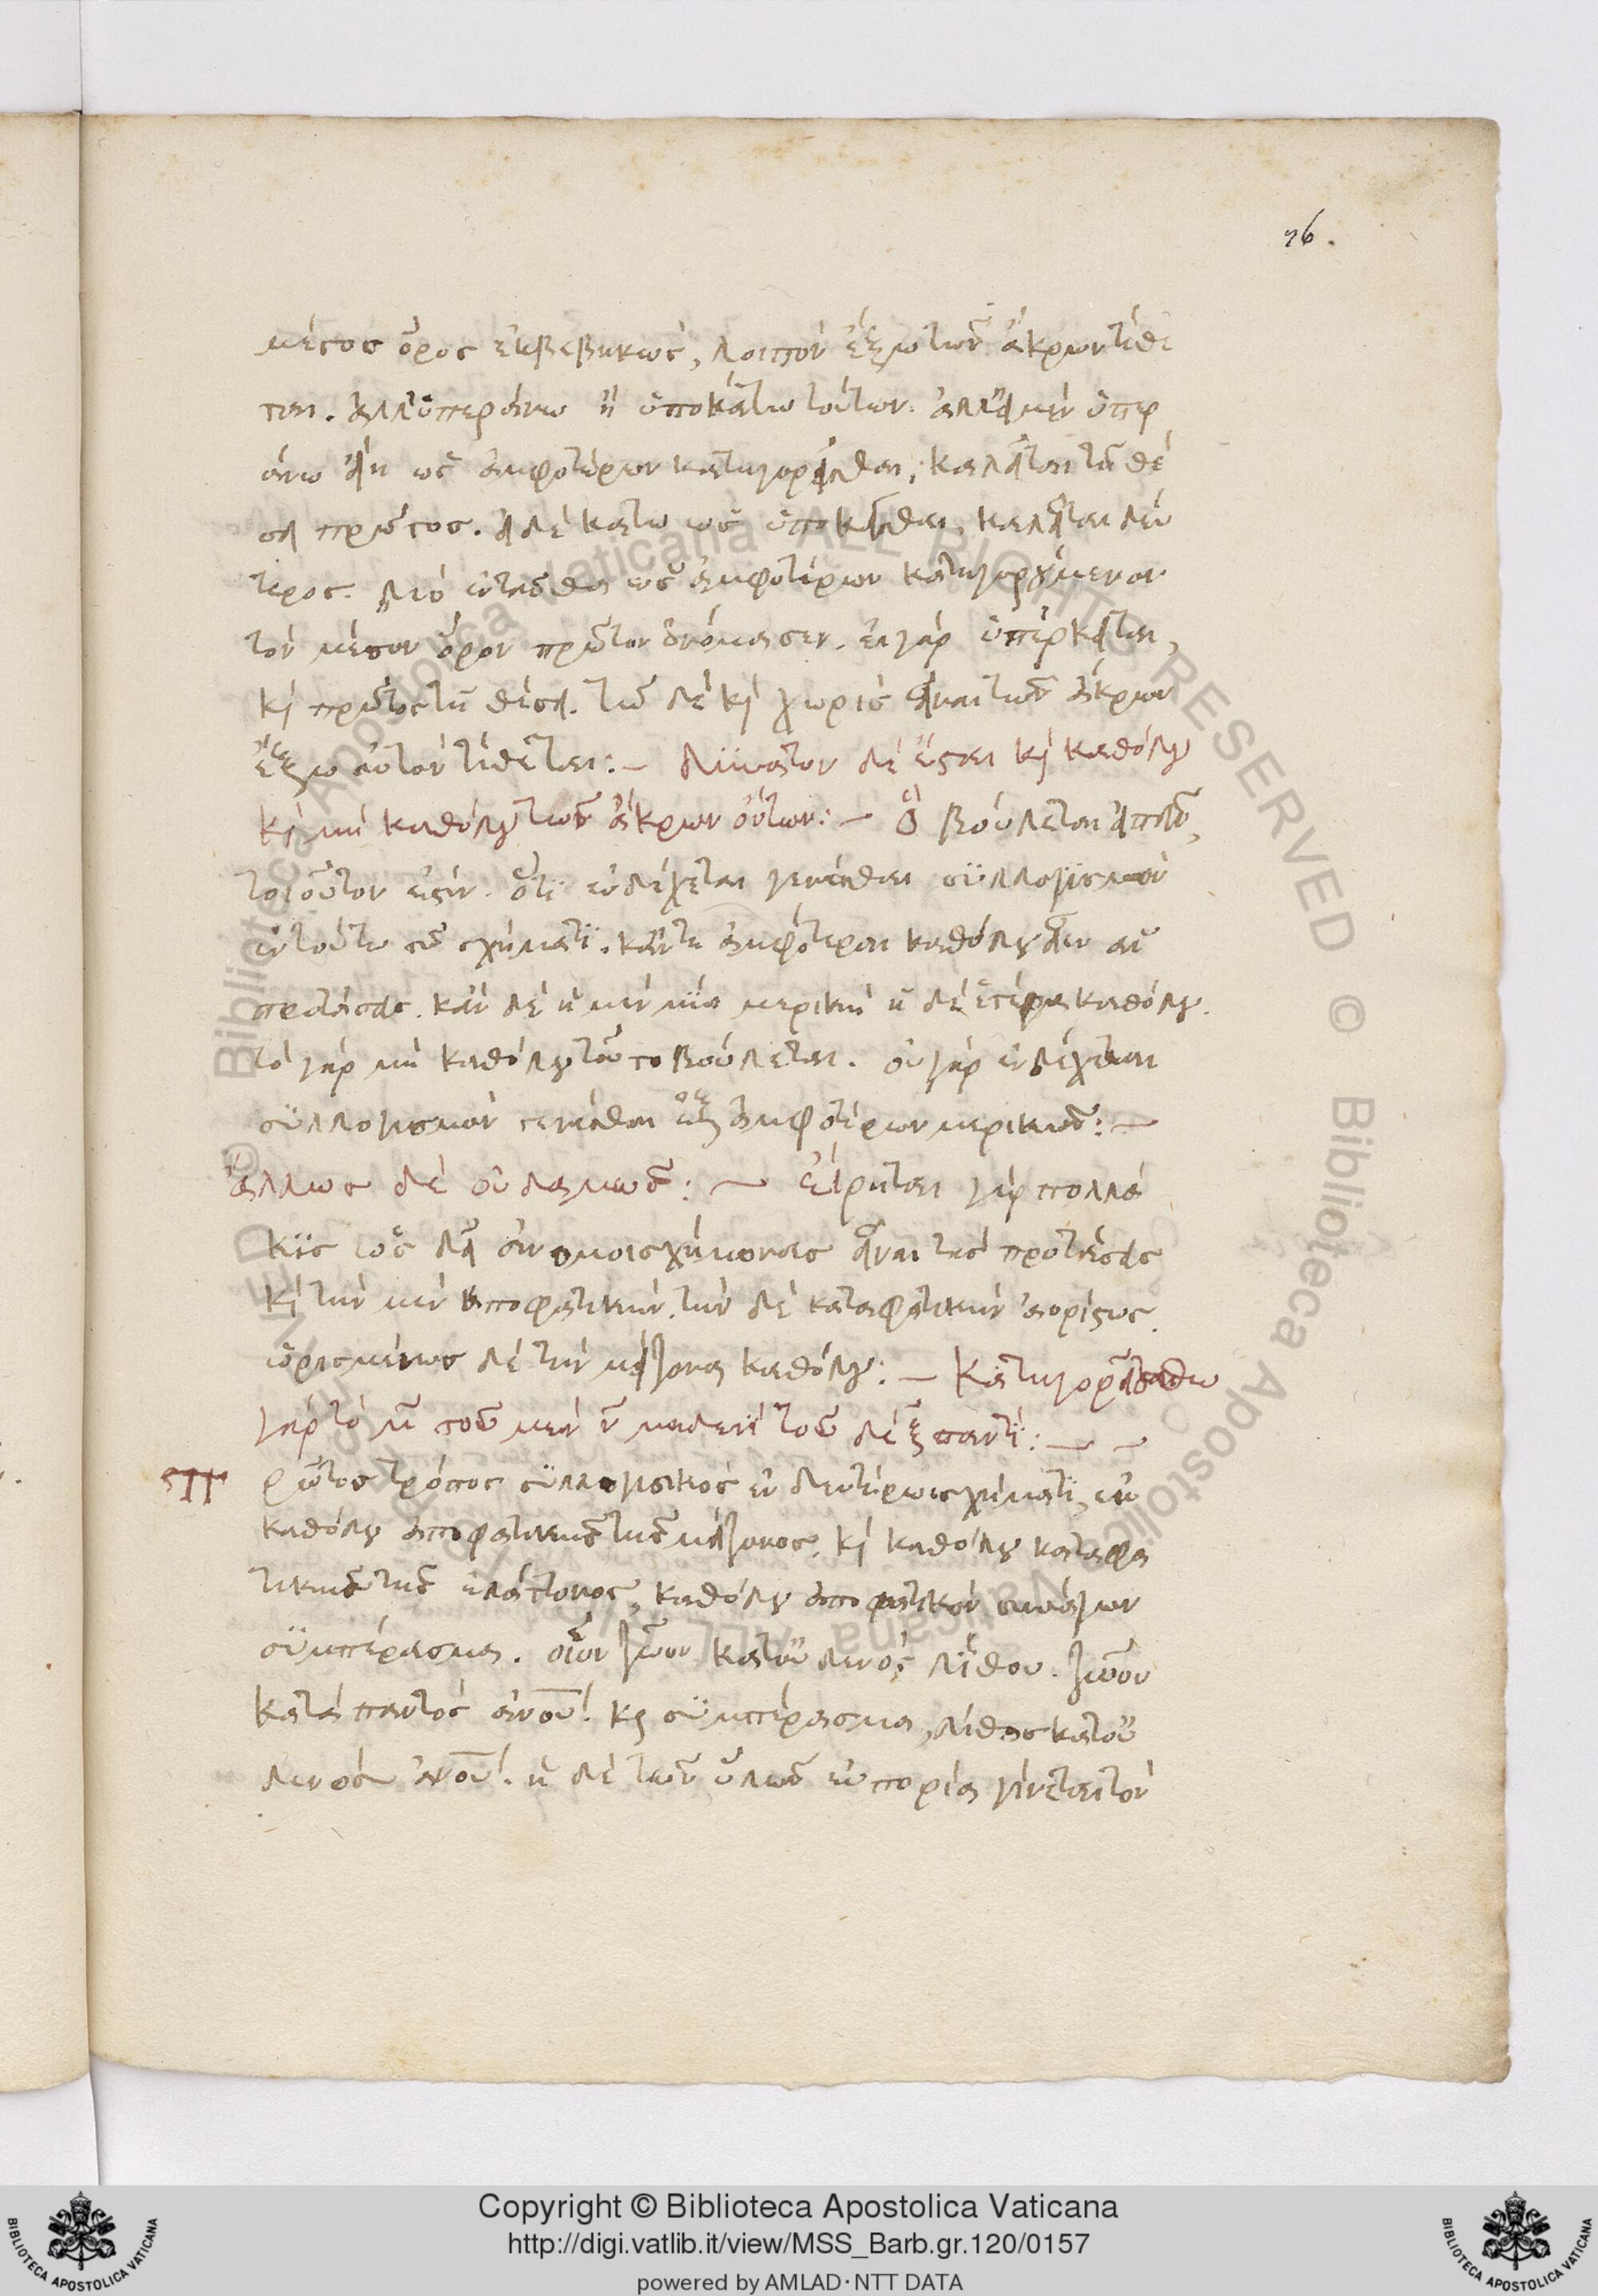 76.
μέσος ὅρος ἐκβεβηκώς, λοιπόν ἔξω τῶν ἄκρων τίθε
ται. ἀλλ' ὑπεράνω ἢ ὑποκάτω τούτων. ἀλλ' εἰ μὲν ὑπερ
άνω εἴη ὡς ἀμφοτέρων κατηγορεῖσθαι, καλεῖται τῇ θέ
σει πρῶτος. εἰ δὲ κάτω ὡς ὑποκεῖσθαι, καλεῖται δεύ
τερος. διὸ ἐνταῦθα ὡς ἀμφοτέρων κατηγορούμενον
τὸν μέσον ὅρον πρῶτον ὀνόμασεν. εἰ γὰρ ὑπέρκειται,
κὶ πρῶτος τῇ θέσει. τῷ δὲ κὶ χωρὶς εἶναι τῶν ἄκρων
ἔξω αὐτὸν τίθεται:— Δυνατὸν δὲ ἔσται κὶ καθόλου
κὶ μὴ καθόλου τῶν ἄκρων ὄντων:— ὃ βούλεται εἰπεῖν,
τοιοῦτον ἐστίν. ὅτι ἐνδέχεται γενέσθαι συλλογισμὸν
ἐν τούτῳ τῷ σχήματι. κἄν τε ἀμφότεραι καθόλου εἶεν αἱ
προτάσεις. κἂν δὲ ἡ μὲν μία μερικὴ ἡ δὲ ἑτέρα καθόλου.
τὸ γὰρ μὴ καθόλου τοῦτο βούλεται. οὐ γὰρ ἐνδέχεται
συλλογισμὸν γενέσθαι ἐξ ἀμφοτέρων μερικῶν:—
ἄλλως δὲ οὐδαμῶς:— Εἴρηται γὰρ πολλά
κις ὡς δεῖ ἀνομοιοσχήμονας εἶναι τὰς προτάσεις
κὶ τὴν μὲν ἀποφατικὴν. τὴν δὲ καταφατικὴν ἀορίστως.
ὡρισμένως δὲ τὴν μείζονα καθόλου:— Κατηγορείσθω
γὰρ τὸ μ τοῦ μὲν ν μηδενὶ τοῦ δὲ ξ παντί:—
Πρῶτος τρόπος συλλογιστικὸς ἐν δευτέρῳ σχήματι, ἐκ
καθόλου ἀποφατικῆς τῆς μείζονος, κὶ καθόλου καταφα
τικῆς τῆς ἐλάττονος, καθόλου ἀποφατικὸν συνάγων
συμπέρασμα. οἷον ζῶον κατ' οὐδενὸς λίθου. ζῶον
κατὰ παντὸς ἀνου. κὶ συμπέρασμα, λίθος κατ' οὐ
δενὸς ἀνου. ἡ δὲ τῶν ὑλῶν εὐπορία γίνεται τὸν
Copyright © Biblioteca Apostolica Vaticana
http://digi.vatlib.it/view/MSS_Barb.gr.120/0157
powered by AMLAD·NTT DATA